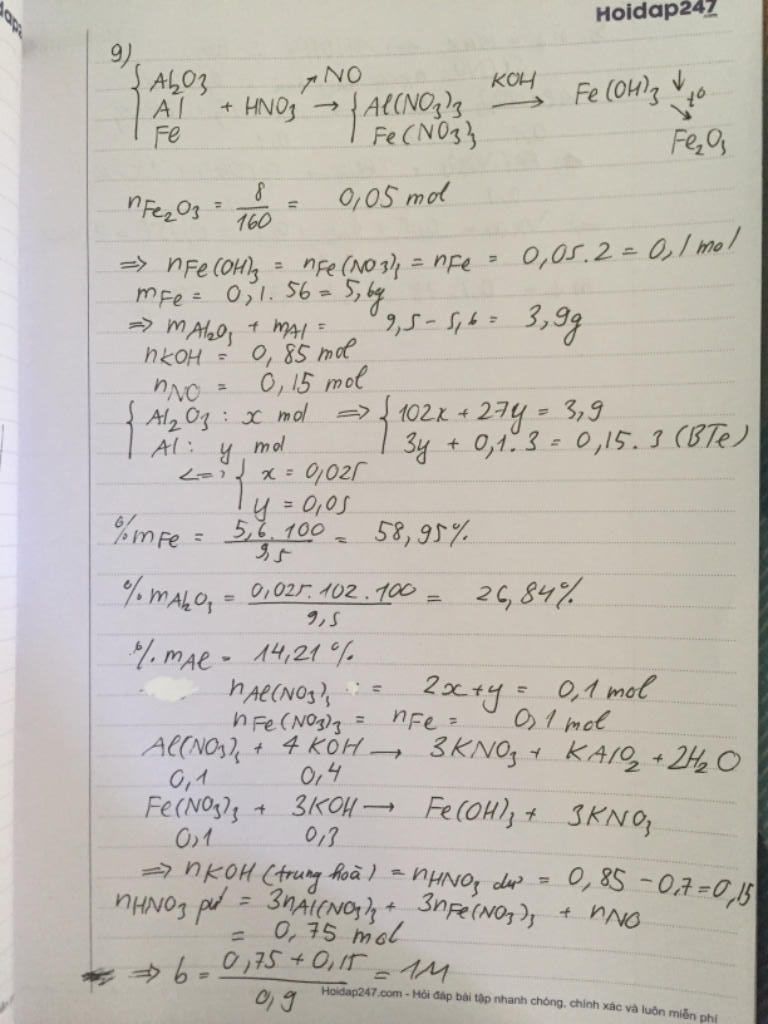 Hoidap247
9)
Al2O3 ↗NO
Al + HNO3 → { Al(NO3)3 KOH→ Fe(OH)3 ↓ t°
Fe Fe(NO3)3 ↘ Fe2O3
nFe2O3 = 8/160 = 0,05 mol
=> nFe(OH)3 = nFe(NO3)3 = nFe = 0,05.2 = 0,1 mol
mFe = 0,1.56 = 5,6g
=> mAl2O3 + mAl = 9,5 - 5,6 = 3,9g
nKOH = 0,85 mol
nNO = 0,15 mol
{ Al2O3 : x mol => { 102x + 27y = 3,9
Al : y mol 3y + 0,1.3 = 0,15.3 (BTe)
<=> { x = 0,025
y = 0,05
%mFe = 5,6.100/9,5 = 58,95%
%mAl2O3 = 0,025.102.100/9,5 = 26,84%
%mAl = 14,21%
nAl(NO3)3 = 2x+y = 0,1 mol
nFe(NO3)3 = nFe = 0,1 mol
Al(NO3)3 + 4KOH → 3KNO3 + KAlO2 + 2H2O
0,1 0,4
Fe(NO3)3 + 3KOH → Fe(OH)3 + 3KNO3
0,1 0,3
=> nKOH (trung hoà) = nHNO3 dư = 0,85 - 0,7 = 0,15
nHNO3 pư = 3nAl(NO3)3 + 3nFe(NO3)3 + nNO
= 0,75 mol
=> b = 0,75 + 0,15/0,9 = 1M
Hoidap247.com - Hỏi đáp bài tập nhanh chóng, chính xác và luôn miễn phí